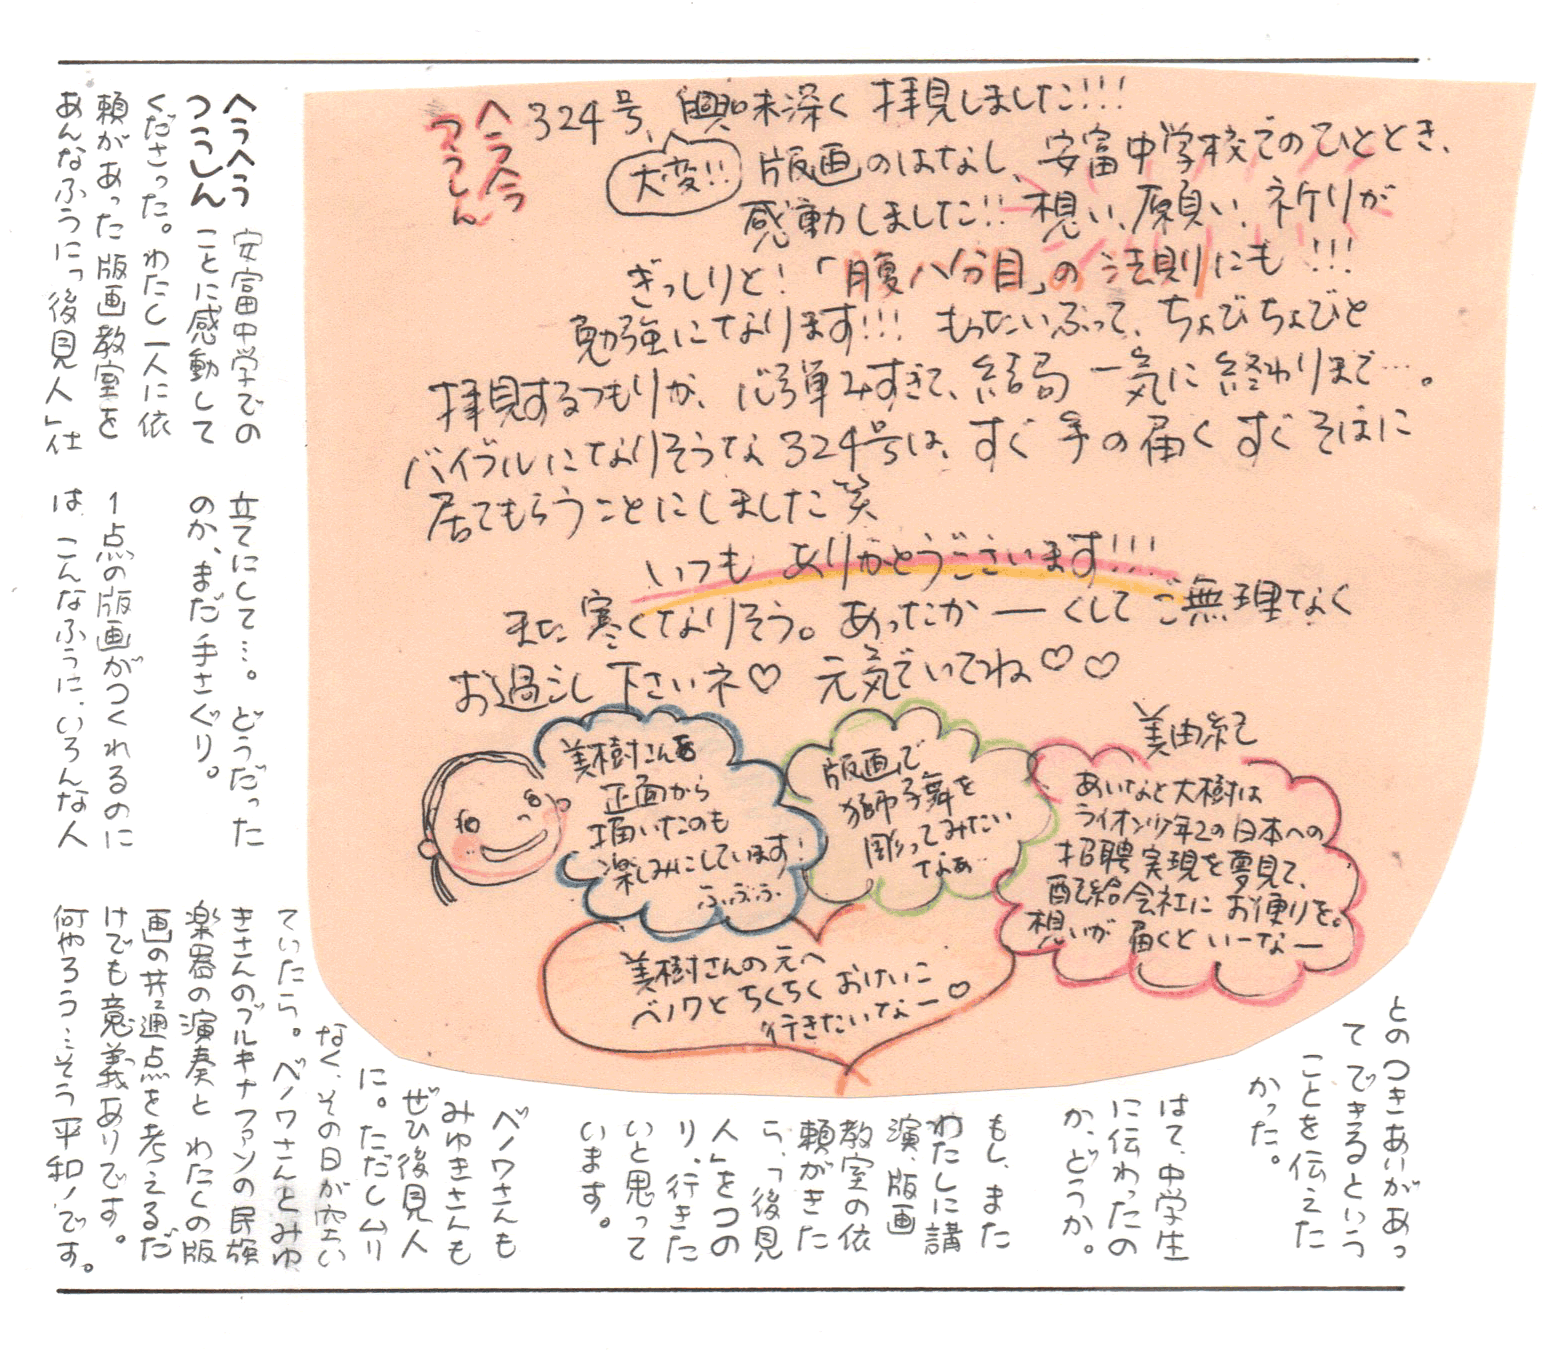 ヘラヘラ
つうしん
324号、興味深く 拝見しました!!!
大変!!
版画のはなし、安富中学校でのひととき、
感動しました!! 想い、願い、祈りが
ぎっしりと!「腹八分目」の法則にも!!!
勉強になります!!! もったいぶって、ちょびちょびと
拝見するつもりが、心弾みすぎて、結局 一気に終わりまで…。
バイブルになりそうな324号は、すぐ手の届くすぐそばに
居てもらうことにしました笑
いつも ありがとうございます!!!
また寒くなりそう。あったかーくしてご無理なく
お過ごし下さいネ♡ 元気でいてね♡♡
美由紀
美樹さんを
正面から
描いたのも
楽しみにしています!
ふふふ
版画で
獅子舞を
彫ってみたい
なぁ
あいなと大樹は
ライオン少年2の日本への
招聘実現を夢見て、
配給会社にお便りを。
想いが届くといーなー
美樹さんの元へ
ベノワとちくちくおけいこ
行きたいなー♡
ヘラヘラ
つうしん
安富中学での
ことに感動して
くださった。わたし一人に依
頼があった版画教室を
あんなふうに「後見人」仕
立てにして…。どうだった
のか、まだ手さぐり。
1点の版画がつくれるのに
は、こんなふうに、いろんな人
とのつきあいがあっ
てできるという
ことを伝えた
かった。
はて、中学生
に伝わったの
か、どうか。
もし、また
わたしに講
演、版画
教室の依
頼がきた
ら、「後見
人」をつの
り、行きた
いと思って
います。
ベノワさんも
みゆきさんも
ぜひ後見人
に。ただしムリ
なく、その日が空い
ていたら。ベノワさんとみゆ
きさんのブルキナファソの民族
楽器の演奏とわたくの版
画の共通点を考えるだ
けでも意義ありです。
何やろう…そう平和!です。